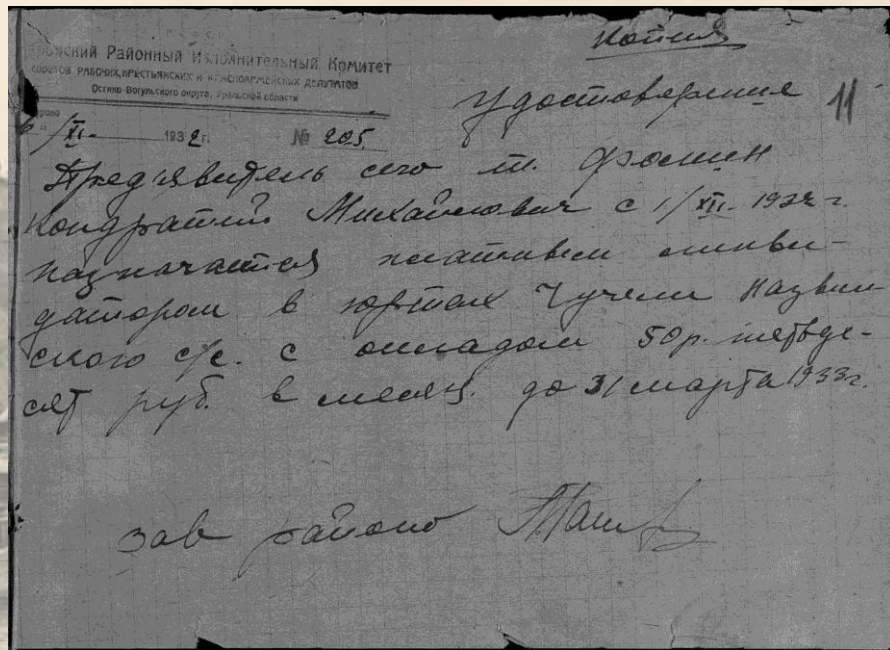 Копия
Районный Исполнительный Комитет
СОВЕТОВ РАБОЧИХ, КРЕСТЬЯНСКИХ И КРАСНОАРМЕЙСКИХ ДЕПУТАТОВ
Остяко-Вогульского округа, Уральской области
Удостоверение 11
/XI- 1932г. № 205.
Предъявитель сего т. Фомин
Кондратий Михайлович с 1/XII- 1932 г.
назначается платным ликви-
датором в юртах Чучели
ского с/с. с окладом 50р.
сят руб. в месяц. до 31 марта 1933г.
зав районо